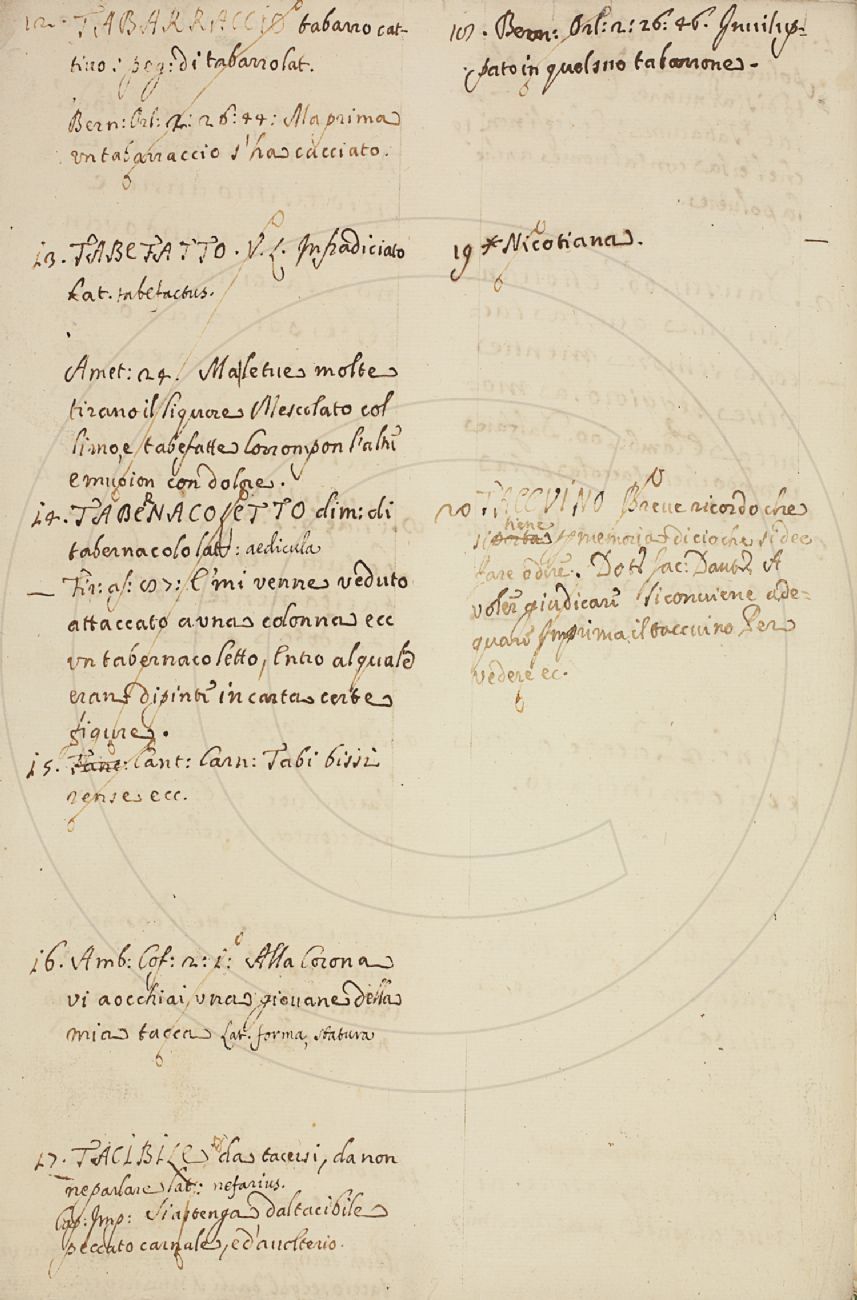 12. TABARRACCIO tabarro cat-
tivo: peg: di tabarro lat.
Bern: Orl: 2: 26: 44: Ma prima
un tabarraccio s'ha cacciato.
13. TABEFATTO. V. L. Infradiciato
Lat. tabefactus.
Amet: 24. Ma le tue molte
tirano il liquore Mescolato col
limo, e tabefatte Corrompon
e con dolore.
14. TABERNACOLETTO dim: di
tabernacolo lat: aedicula
Fir: as: E mi venne veduto
attaccato a una colonna ecc
un tabernacoletto, Entro al quale
eran dipinte in carta certe
figure.
15. Cant: Carn: Tabi bissi
rense ecc.
16. Amb: Cof: 2: 1: Alla Corona
vi aocchiai una giovane della
mia tacca Lat. forma, statura
17. TACIBILE da tacersi, da non
ne parlare lat: nefarius.
Imp: Si astenga dal tacibile
peccato carnale, e d'avolterio.
Bern: Orl: 2: 26: 46. Invilup-
pato in quel suo tabarrone.
19 * Nicotiana.
20 TACCUINO Breve ricordo che
si tiene p memoria di cio che si dee
fare o dire. Dott Jac: Dant A
voler giudicare Si conviene ade-
quare Imprima il taccuino Per
vedere ec.